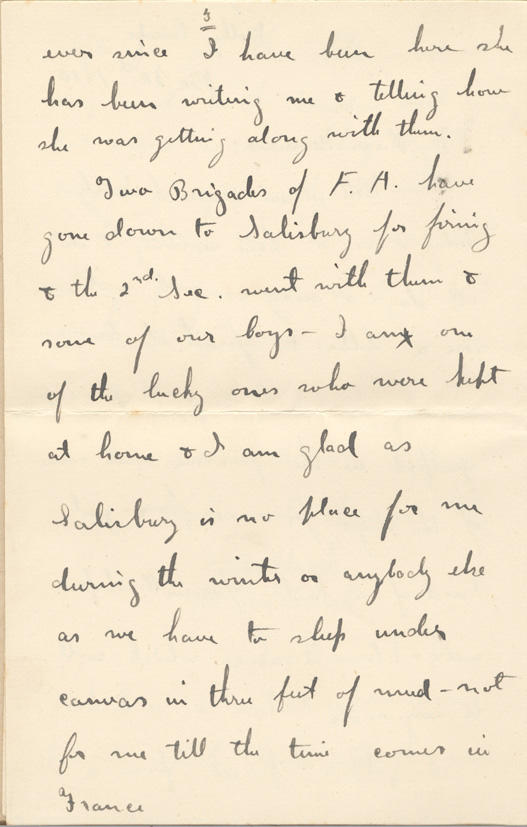 5
ever since I have been here she
has been writing me & telling how
she was getting along with them.
Two Brigades of F. A. have
gone down to Salisbury for firing
& the 2nd. Sec. went with them &
some of our boys – I am one
of the lucky ones who were kept
at home & I am glad as
Salisbury is no place for me
during the winter or anybody else
as we have to sleep under
canvas in three feet of mud – not
for me till the time comes in
France